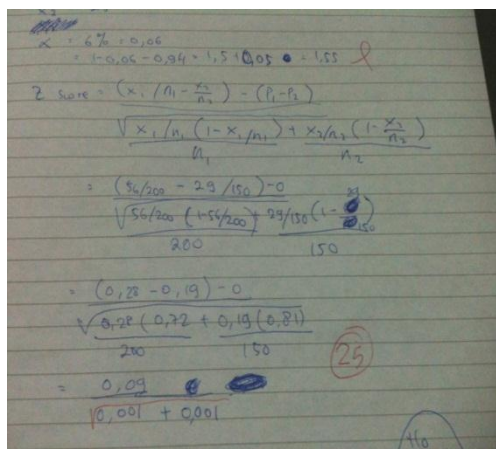 α = 6% = 0,06
= 1-0,06 - 0,94 = 1,5 + 0,05 = 1,55
Z score = (x1/n1 - x2/n2) - (P1-P2)
√ x1/n1 (1 - x1/n1) + x2/n2 (1 - x2/n2)
n1 n2
= (56/200 - 29/150) - 0
√ 56/200 (1-56/200) + 29/150 (1 - 29/150)
200 150
= (0,28 - 0,19) - 0
√ 0,28 (0,72 + 0,19 (0,81)
200 150
25
= 0,09
√ 0,001 + 0,001
Ho